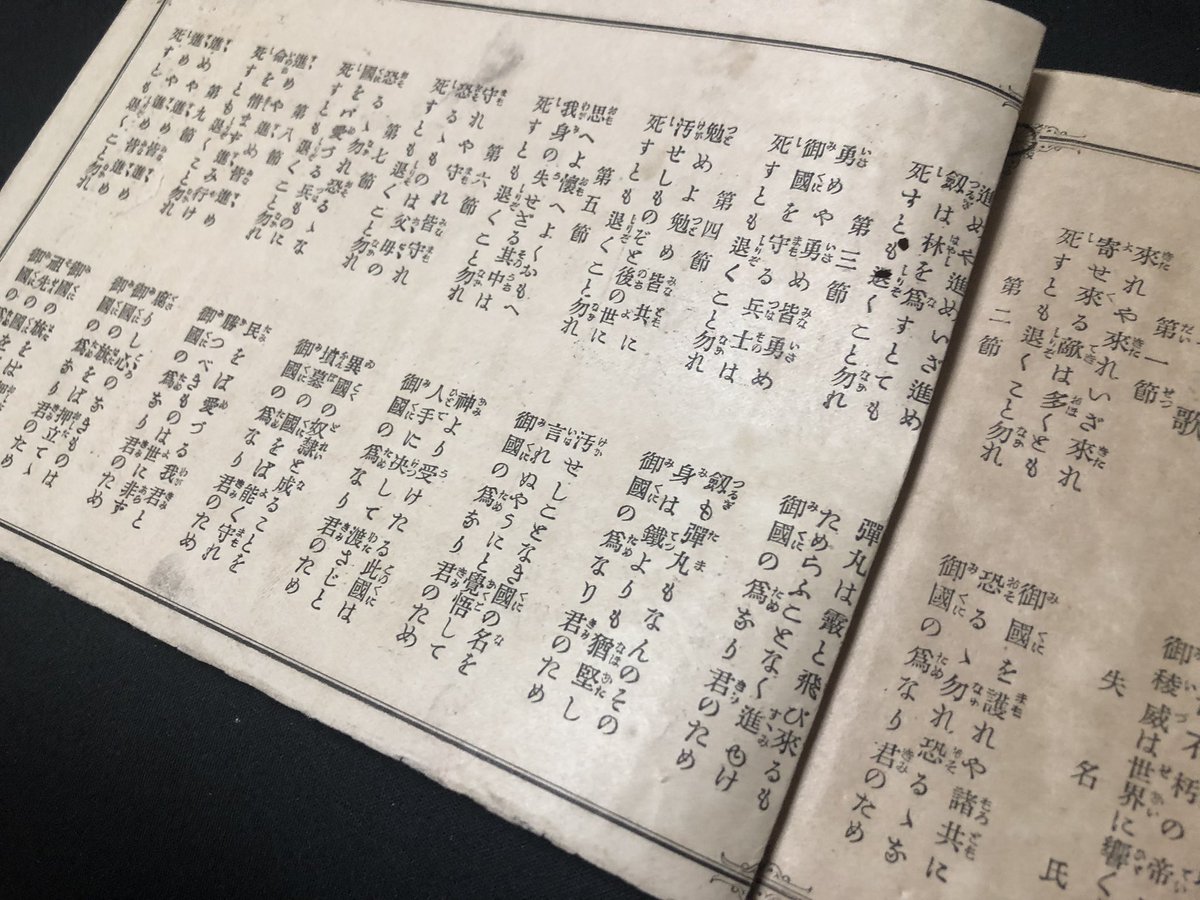 不朽の帝
御稜威は世界に響く
失名氏
歌
第一節
來れや來れいざ來れ 御國を護れや諸共に
寄せ來る敵は多くとも 恐るゝ勿れ恐るゝな
死すとも退くこと勿れ 御國の爲なり君のため
第二節
進めや進めいざ進め 彈丸は霰と飛び來るも
劔は林を爲すとても ためらふことなく進みゆけ
死すとも退くこと勿れ 御國の爲なり君のため
第三節
勇めや勇め皆勇め 劔も彈丸もなんのその
御國を守る兵士は 身は鐵よりも猶堅し
死すとも退くこと勿れ 御國の爲なり君のため
第四節
勉めよ勉め皆共に 汚せしことなき國の名を
汚せしものぞと後の世に 言れぬやうにと覺悟して
死すとも退くこと勿れ 御國の爲なり君のため
第五節
思へよ懷へよくおもへ 神より受けたる此國は
我身の失せざる其中は 人手に决して渡さじと
死すとも退くこと勿れ 御國の爲なり君のため
第六節
守れや守れ皆守れ 異國の奴隷と成ることを
恐るゝものは父母の 墳墓の國をば能く守れ
死すとも退くこと勿れ 御國の爲なり君のため
第七節
恐るゝ勿れ恐るゝな 民をば愛づる我君と
國をバ愛づる兵ものに 勝つべきものはよも世に非ず
死すとも退くこと勿れ 御國の爲なり君のため
第八節
進めや進め皆進め 御國の旗をば押立てゝ
命を惜まず進み行け 腐りし心のなきものは
死すとも退くこと勿れ 御國の爲なり君のため
第九節
進めや進め皆進め 御國の旗を
進めや進め皆進め 祖先の國を
死すとも退くこと勿れ 御國の